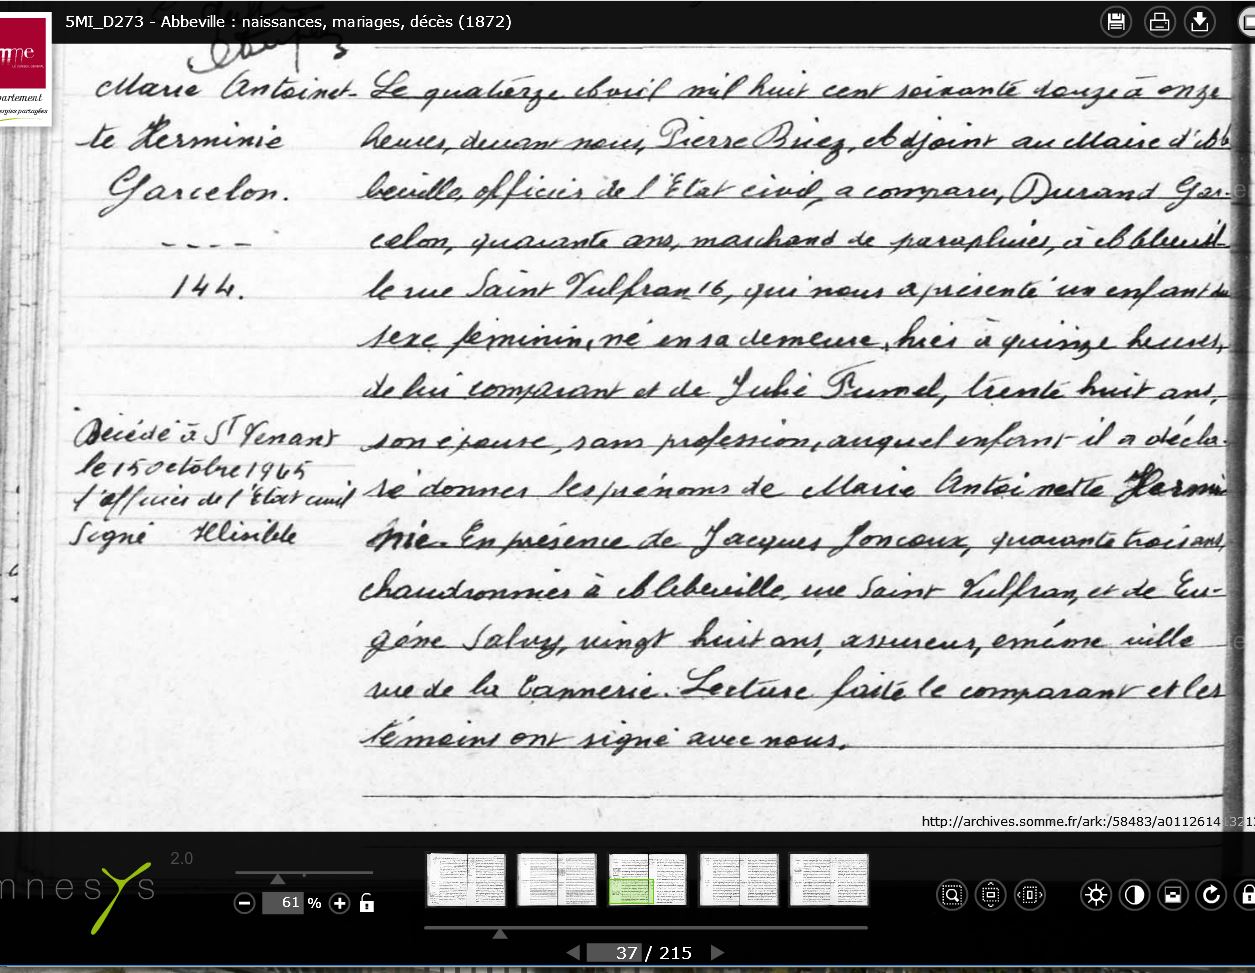 5MI_D273 - Abbeville : naissances, mariages, décès (1872)
mme
partement
Marie Antoinet-
te Herminie
Garcelon.
----
144.
Décédé à St Venant
le 15 octobre 1945
l'officier de l'Etat civil
Signé Illisible
Le quatorze Avril mil huit cent soixante douze à onze
heures, devant nous, Pierre Briez, Adjoint au Maire d'Ab
beville, officier de l'Etat civil, a comparu, Durand Gar-
celon, quarante ans, marchand de parapluies, à Abbevil-
le rue Saint Vulfran 16, qui nous a présenté un enfant du
sexe féminin, né en sa demeure, hier à quinze heures,
de lui comparant et de Julie Fumel, trente huit ans,
son épouse, sans profession, auquel enfant il a décla-
ré donner les prénoms de Marie Antoinette Hermi
nie. En présence de Jacques Joncoux, quarante trois ans,
chaudronnier à Abbeville, rue Saint Vulfran, et de Eu-
gène Salvy, vingt huit ans, assureur, emême ville
rue de la Tannerie. Lecture faite le comparant et les
témoins ont signé avec nous.
http://archives.somme.fr/ark:/58483/a0112614
mnesys
2.0
61 %
37 / 215